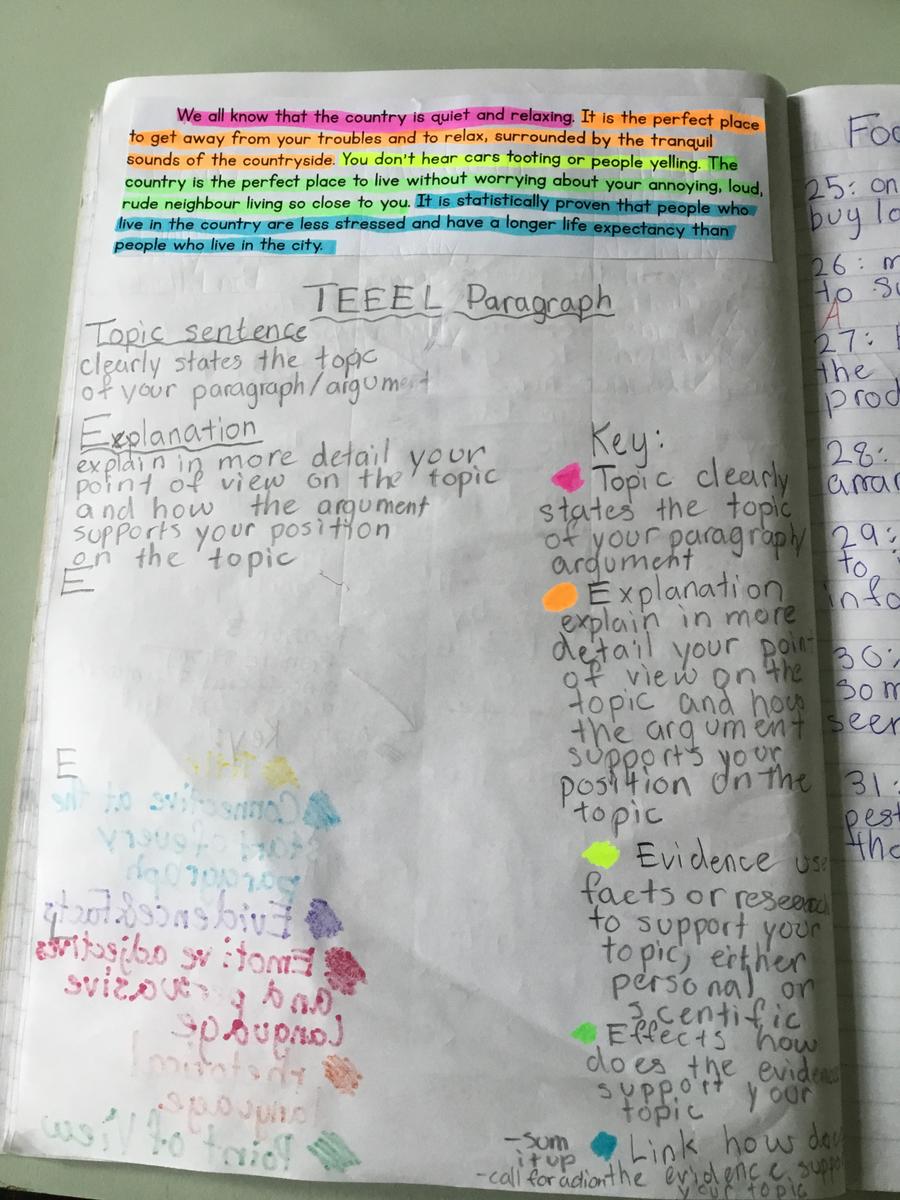 We all know that the country is quiet and relaxing. It is the perfect place
to get away from your troubles and to relax, surrounded by the tranquil
sounds of the countryside. You don't hear cars tooting or people yelling. The
country is the perfect place to live without worrying about your annoying, loud,
rude neighbour living so close to you. It is statistically proven that people who
live in the country are less stressed and have a longer life expectancy than
people who live in the city.
TEEEL Paragraph
Topic sentence
clearly states the topic
of your paragraph/argument
Explanation
explain in more detail your
point of view on the topic
and how the argument
supports your position
on the topic
E
E
Key:
Topic clearly
states the topic
of your paragraph/
argument
Explanation
explain in more
detail your point
of view on the
topic and how
the argument
supports your
position on the
topic
Evidence use
facts or
to support your
topic, either
personal or
scentific
Effects how
does the evidence
support your
topic
Link how
the evidence
your topic
-sum
it up
-call for adion
Key:
Title
Connective at the
start of every
paragraph
Evidence&facts
Emotive adjectives
and persuasive
language
rhetorical
language.
Point of View
25: on
buy
26:
to
A
27:
the
28:
29:
to
30:
31: